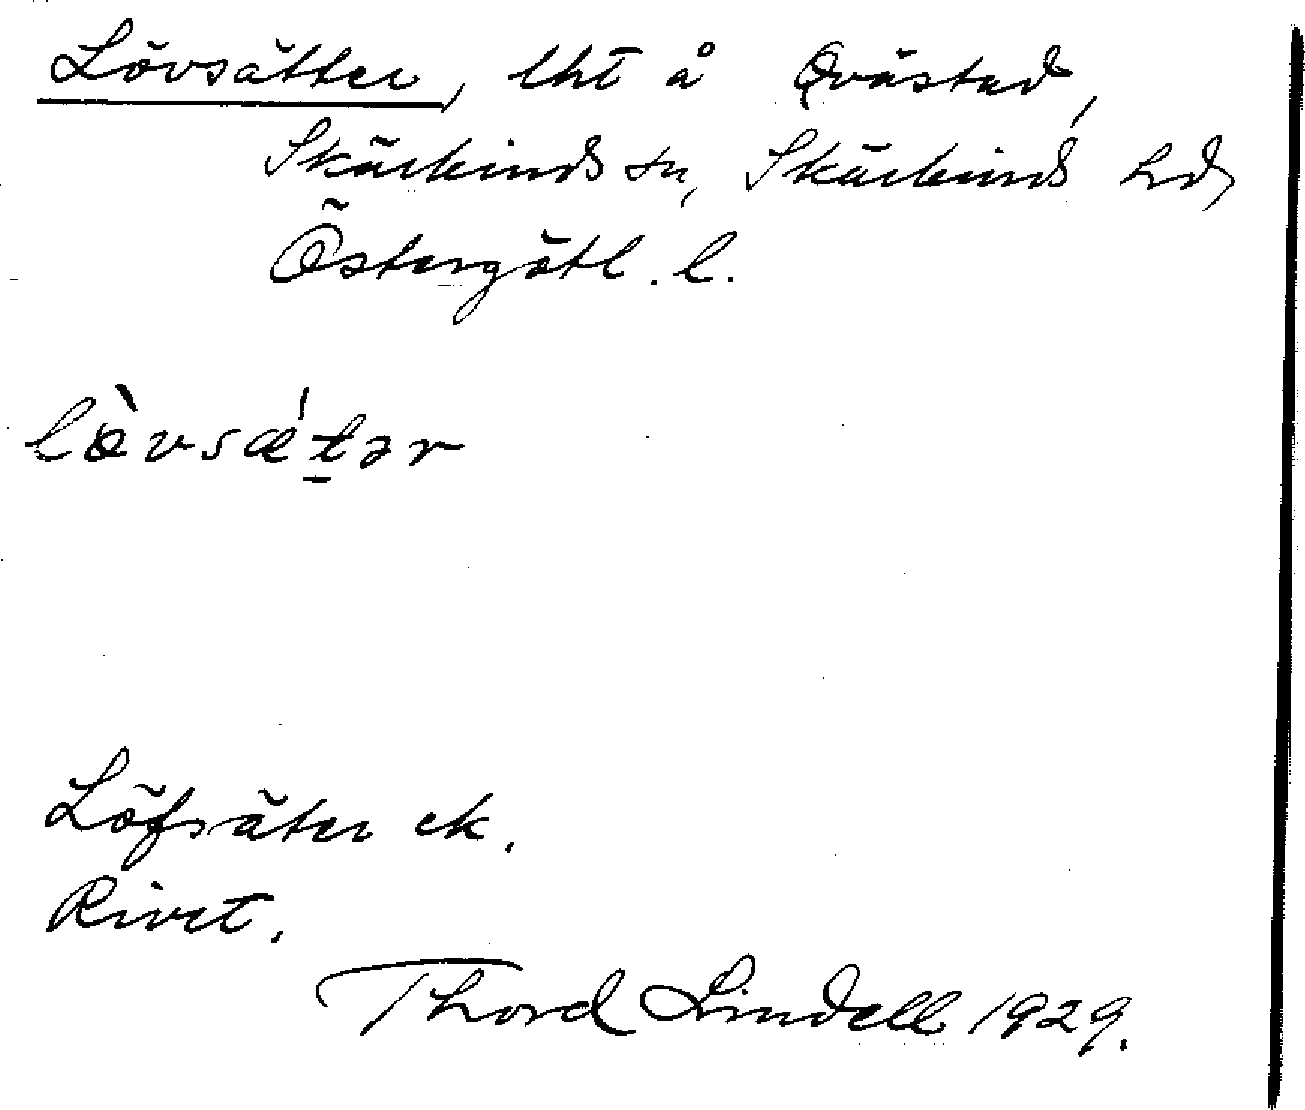 Lövsätter, lht å Qvästad,
Skärkinds sn, Skärkinds hd,
Östergötl. l.
lòvsǽt̠ər
Löfsäter ek.
Rivet.
Thord Lindell 1929.